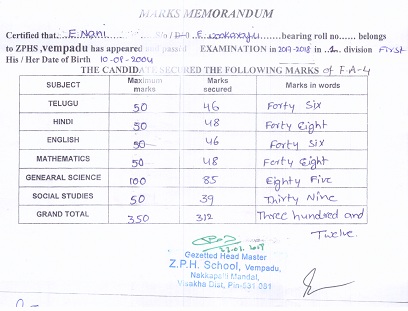 MARKS MEMORANDUM
Certified that. E. Nani S/o / D/o E. bearing roll no. belongs
to ZPHS, vempadu has appeared and passed EXAMINATION in 2017-2018 in .1. division First
His / Her Date of Birth 10-08-2004
THE CANDIDATE SECURED THE FOLLOWING MARKS of F.A-4
SUBJECT Maximum marks Marks secured Marks in words
TELUGU 50 46 Forty Six
HINDI 50 48 Forty Eight
ENGLISH 50 46 Forty Six
MATHEMATICS 50 48 Forty Eight
GENEARAL SCIENCE 100 85 Eighty Five
SOCIAL STUDIES 50 39 Thirty Nine
GRAND TOTAL 350 312 Three hundred and
Twelve.
Gezetted Head Master
Z.P.H. School, Vempadu,
Nakkapalli Mandal,
Visakha Dist, Pin-531 081